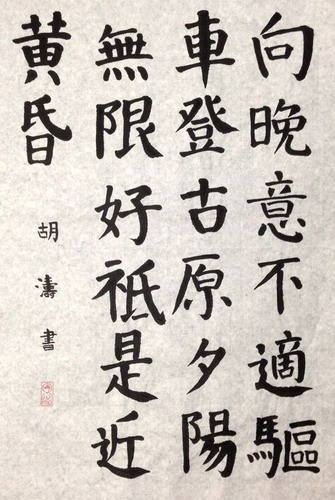 向晚意不適驅
車登古原夕陽
無限好祇是近
黃昏
胡濤書